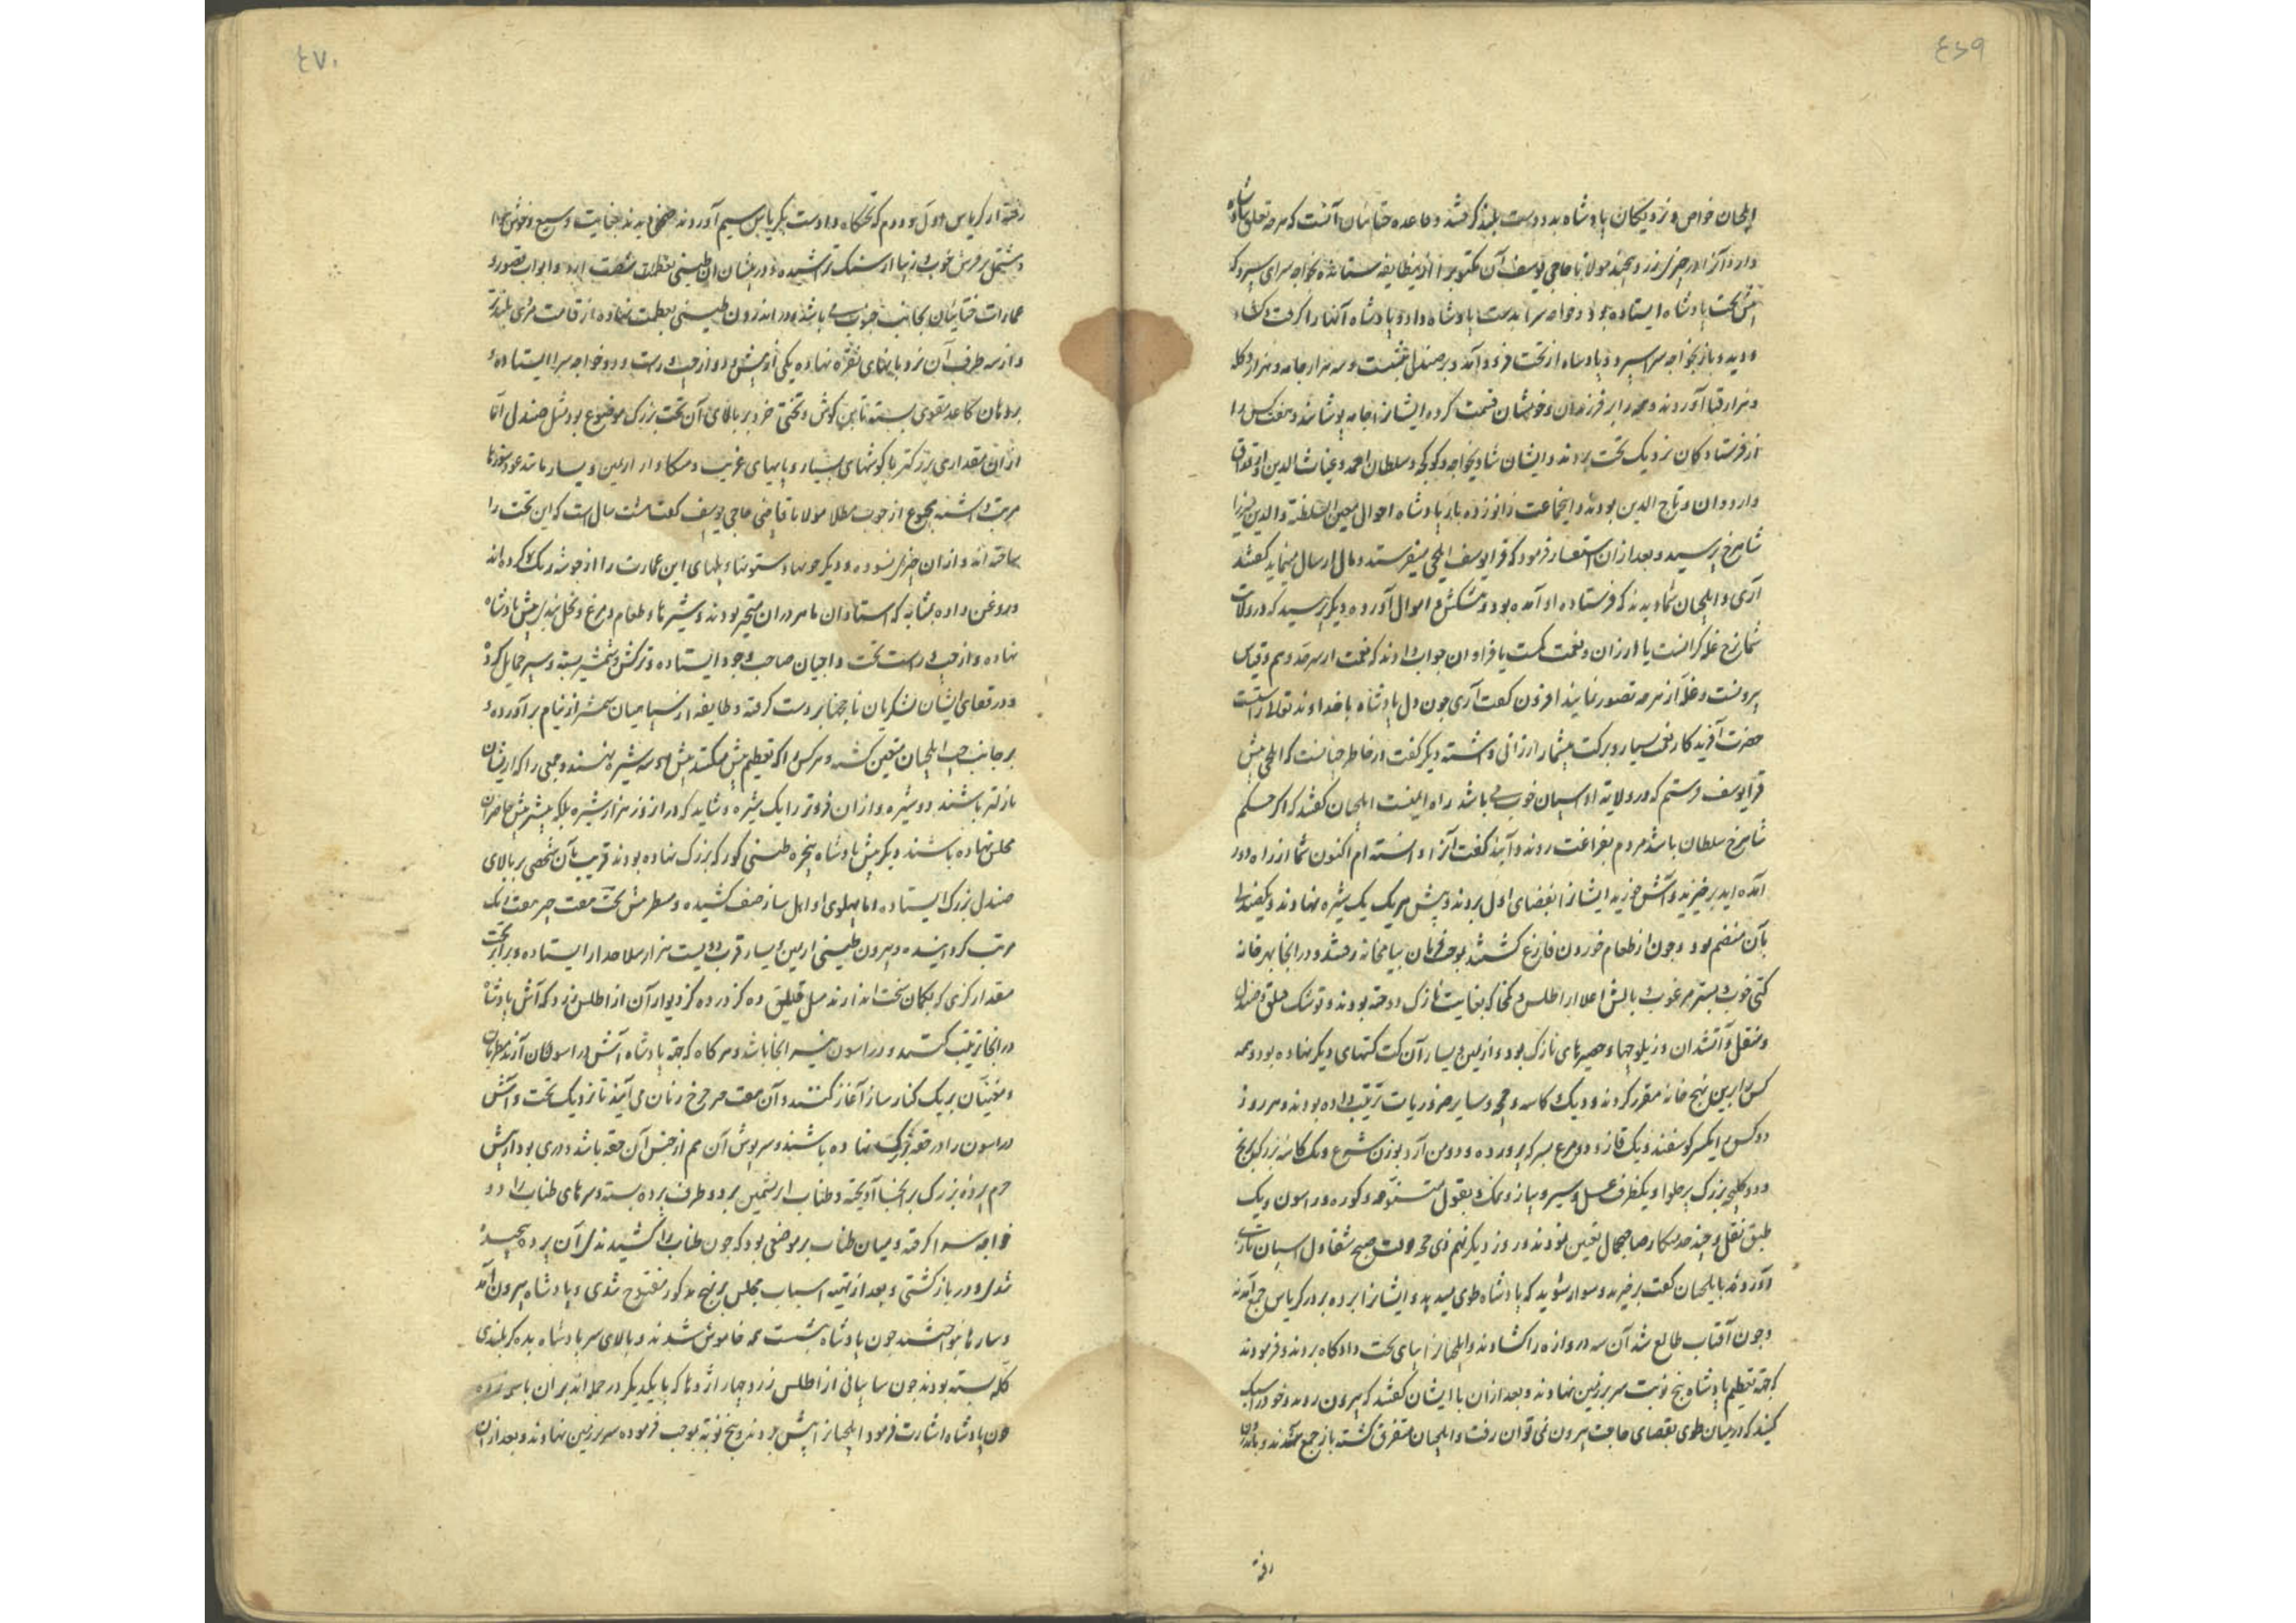 ٤٦٩
ایلچیان خواص و نزدیکان پادشاه بدو دست بلند کرفتند و قاعده ختائیان آنست که هر چه تعلق بپادشاه
دارد آنرا در چیزی زرد پیچند مولانا حاجی یوسف آن مکتوب را ازین طایفه ستانده بخواجه سرای سپرد که
پیش تخت پادشاه ایستاده بود و خواجه سرا بدست پادشاه داد و پادشاه آنها را کرفت و کشاد
و دید و باز بخواجه سرا سپرد و پادشاه از تخت فرود آمد و بر صندل نشست و سه هزار جامه و هزار دکله
و هزار قبا آوردند و همه را بر فرزندان و خویشان قسمت کرده ایشانرا جامه پوشاند و هفت کس را
از فرستادکان نزدیک تخت بردند و ایشان شادیخواجه و کوکچه و سلطان احمد و غیاث الدین و ارغداق
و اردوان و تاج الدین بودند و اینجماعت زانو زده باز پادشاه احوال معین السلطنة و الدین میرزا
شاهرخ پرسید و بعد از ان استفسار فرمود که قرایوسف ایلچی میفرستد و مال ارسال مینماید کفتند
آری و ایلچیان شما دیدند که فرستاده او آمده بود و پیشکش و اموال آورده دیکر پرسید که در ولات
شما نرخ غله کرانست یا ارزان و نعمت کمست یا فراوان جواب دادند که نعمت از سرحد وهم و قیاس
بیرونست و غله از هر چه تصور نمایند افزون کفت آری چون دل پادشاه با خداوند تعالی راستست
حضرت آفریدکار نعمت بسیار و برکت بیشمار ارزانی داشته دیکر کفت در خاطر چنانست که ایلچی پیش
قرایوسف فرستم که در ولایت او اسپان خوب می باشد راه ایمنست ایلچیان کفتند که اکر حکم
شاهرخ سلطان باشد مردم بفراغت روند و آیند کفت آنرا دانسته ام اکنون شما از راه دور
آمده اید برخیزید و آش خورید ایشانرا بفضای اول بردند و پیش هر یک یک شیره نهادند و یک صندلی
بآن منضم بود و چون از طعام خوردن فارغ کشتند بموجب فرمان بیامخانه رفتند و در انجا بهر خانه
کتی خوب و بستر مرغوب و بالش اعلا از اطلس و کمخا که بغایت نازک دوخته بودند و توشک و چلق و صندل
و منقل و آتشدان و زیلوچها و حصیرهای نازک بود و از یمین و یسار آن کت کتهای دیکر نهاده بود و همه
کس را برین نهج خانه مقرر کردند و دیک و کاسه و چمچه و سایر ضروریات ترتیب داده بودند و هر روز
ده کس را یکسر کوسفند و یک قاز و دو مرغ بسرکه پرورده و دو من آرد بوزن شرع و یک کاسه بزرک برنج
و دو کلیچه بزرک پر حلوا و یکظرف عسل و سیر و پیاز و نمک و بقول متنوعه و کوزه دراسون و یک
طبق نقل و چند خدمتکار صاحب جمال تعین نمودند و روز دیکر نهم ذی حجه وقت صبح شقاول اسپان تازی
آورده بایلچیان کفت برخیزید و سوار شوید که پادشاه طوی میدهد و ایشانرا برده بر در کریاس جمع آمدند
و چون آفتاب طالع شد آن سه دروازه را کشادند و ایلچیانرا بپای تخت دادکاه بردند و فرمودند
که بجهة تعظیم پادشاه پنج نوبت سر بر زمین نهادند و بعد از ان با ایشان کفتند که بیرون روید و خود را سبک
کنید که در میان طوی بقضای حاجت بیرون نمی توان رفت و ایلچیان متفرق کشته باز جمع شدند و بازشان
رفته
٤٧٠
رفته از کریاس اول و دوم که تختکاه و دادست بکریاس سیم آوردند صحنی دیدند بغایت وسیع و خوش هوا
و مشتمل بر فرش خوب و زیبا از سنک تراشیده و در پیشان آن طنبی بعظمت شصت ارد و ابواب قصور و
عمارات ختائیان بجانب جنوب می باشد و در اندرون طنبی بعظمت نهاده از قامت مردی بلندتر
و از سه طرف آن نردبانهای نقره نهاده یکی از پیش و دو از چپ و راست و دو خواجه سرا ایستاده و
بر دهان کاغذ مقوی بسته تا بن کوش و تختی خرد بر بالای آن تخت بزرک موضوع بود مثل صندل اما
از ان مقداری بزرکتر با کوشهای بسیار و پایهای غریب و متکاها از یمین و یسار مانند عودسوزها
مرتب داشته مجموع از چوب مطلا مولانا قاضی حاجی یوسف کفت هشت سال است که این تخت را
ساخته اند و از ان چیزی نسوده و دیکر چوبها و ستونها و پلهای این عمارت را از جوشه رنک کرده اند
و روغن داده بمثابه که استادان ماهر در ان متحیر بودند و شیره ها و طعام و مرغ و نخل بندی پیش پادشاه
نهاده و از چپ و راست تخت داجیان صاحب وجود ایستاده و ترکش و شمشیر بسته و سپر حمایل کرده
و در قفای ایشان لشکریان ناچخها بر دست کرفته و طایفه از سپاهیان شمشیر از نیام برآورده و
بر جانب چپ ایلچیان متعین کشته و هر کس را که تعظیم بیش میکنند پیش او سه شیره بنهند و جمعی را که از ایشان
نازلتر باشند دو شیره و از ان فروتر را یک شیره و شاید که در انروز هزار شیره بلکه بیشتر پیش حاضران
مجلس نهاده باشند دیکر پیش پادشاه پنجره طنبی کورکه بزرک نهاده بودند قریب بآن شخصی بر بالای
صندل بزرک ایستاده اما پهلوی او اهل ساز صف کشیده و مطر پیش تخت هفت چتر هفت رنک
مرتب کردانیده و بیرون طنبی از یمین و یسار قرب دویست هزار سلاحدار ایستاده و برابر تخت
مقدار کزی که بکمان سخت اندازند مثل قیتلق ده کز در ده کز دیوار آن از اطلس زرد که آش پادشاه
در انجا ترتیب کنند و دراسون نیز انجا باشد و هر کاه که بجهة پادشاه آش و دراسون آن آرند مطربان
و مغنیان بر یک کنار ساز آغاز کنند و آن هفت چتر چرخ زنان می آیند تا نزدیک تخت و آش
دراسون را در حقه بزرک نهاده باشند و سرپوش آن هم از جنس آن حقه باشد و دری بود از پیش
حرم پرده بزرک بر انجا آویخته و طناب ابریشمین بر دو طرف پرده بسته و سرهای طناب را دو
خواجه سرا کرفته و میان طناب بر موضعی بود که چون طناب را کشیدندی آن پرده پیچیده
شدی و در بازکشتی و بعد از تهیه اسباب مجلس بر نهج مذکور در مفتوح شدی و پادشاه بیرون آمد
و سازها نواختند چون پادشاه نشست همه خاموش شدند و بالای سر پادشاه بده کز بلندی
کله بسته بودند چون سایبانی از اطلس زرد و چهار اژدها که با یکدیکر در حمله اند بر ان
چون پادشاه اشارت فرمود ایلچیانرا پیش بردند و پنج نوبة بموجب فرموده سر بر زمین نهادند و بعد از ان